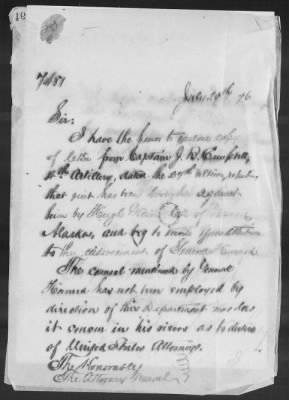 7451
July 29th 76
Sir:
I have the honor to enclose copy
of letter from Captain J. B. Campbell,
4th Artillery, dated the 27th ultimo, reporting
that suit has been brought against
him by Hugh of
Alaska, and beg to invite your attention
to the endorsement of General Howard.
The counsel mentioned by General
Howard has not been employed by
direction of this Department nor does
it concur in his views as to duties
of United States Attorneys.
The Honorable
The Attorney General